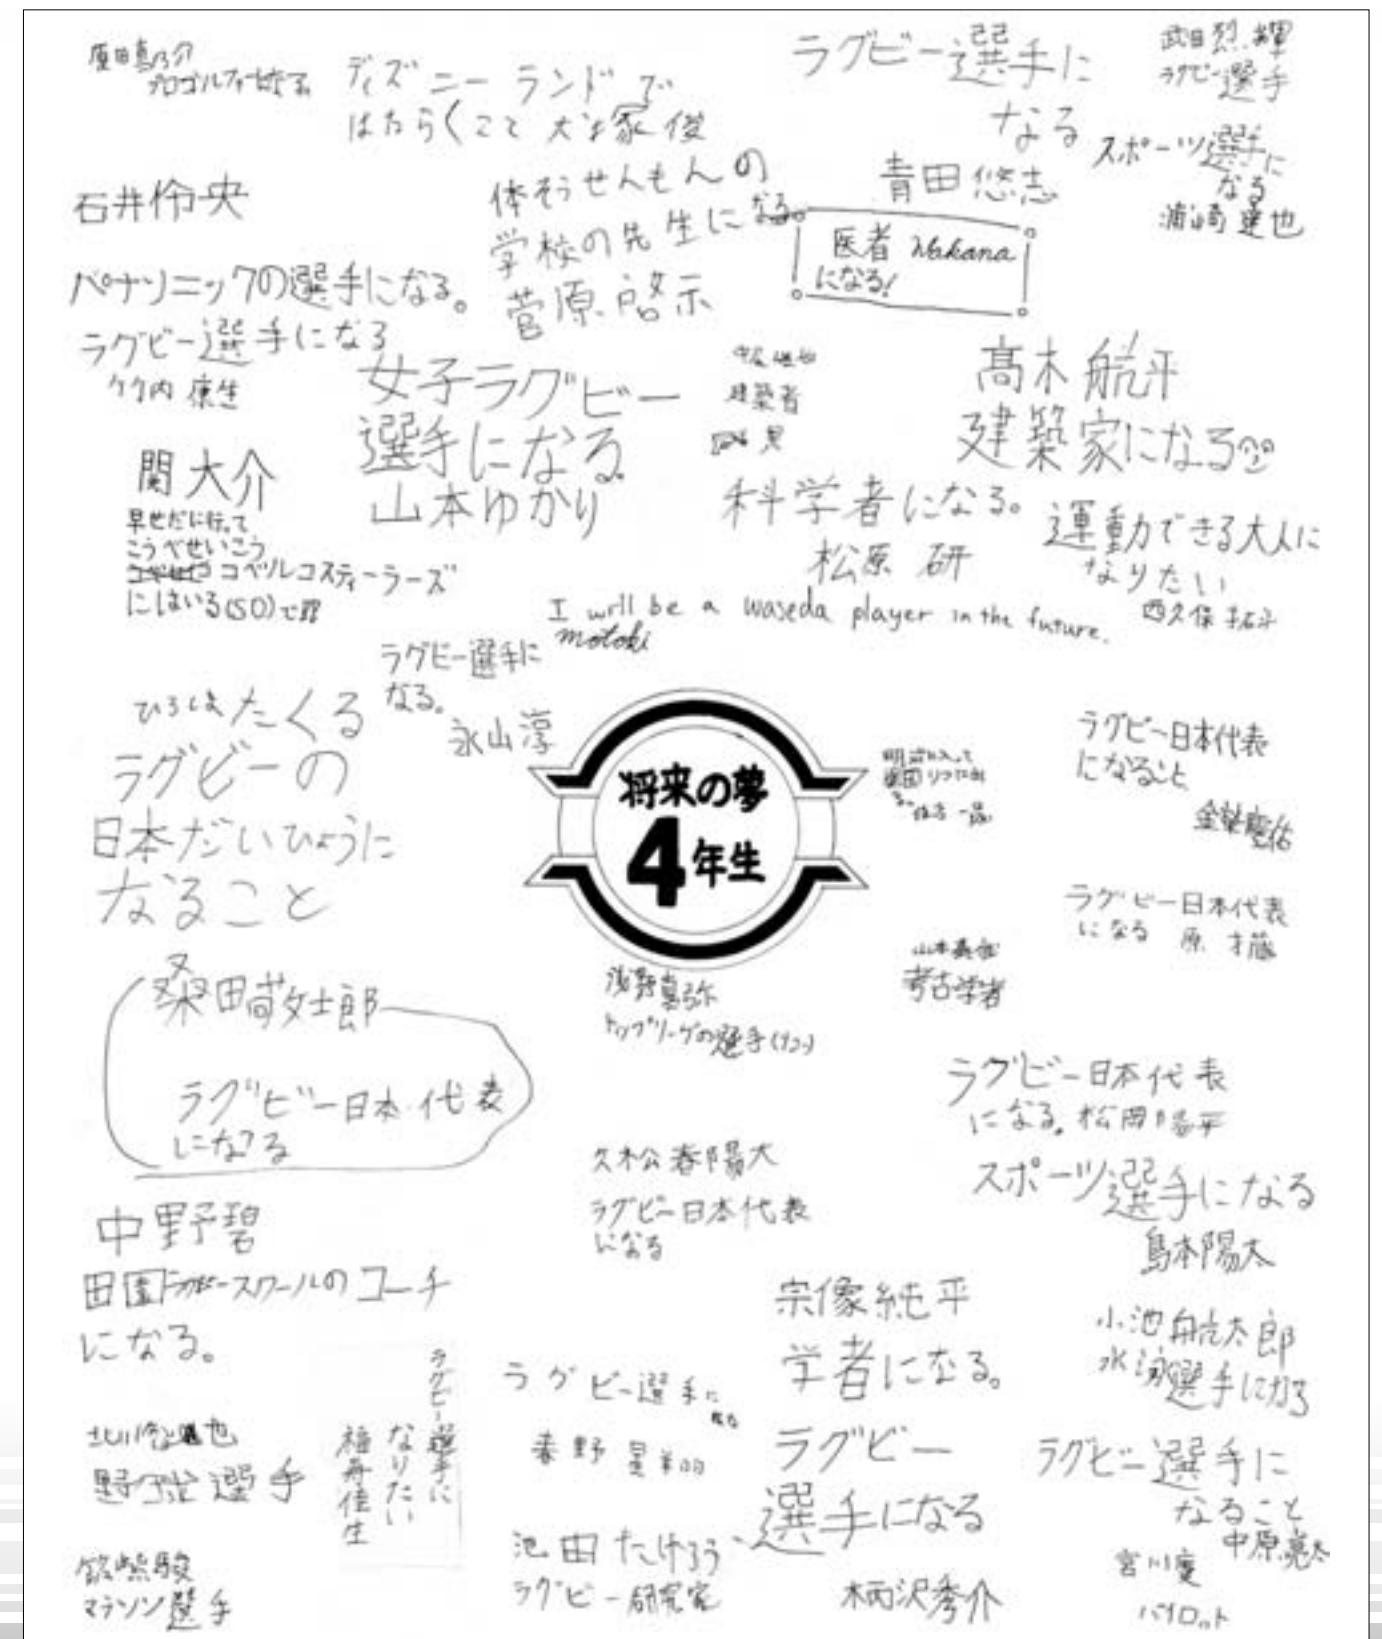 原田真乃介
プロゴルファーになる
ディズニーランドで
はたらくこと 大塚 俊
ラグビー選手に
なる
青田悠志
武田烈輝
ラグビー選手
スポーツ選手に
なる
浦崎達也
石井伶央
パナソニックの選手になる。
体そうせんもんの
学校の先生になる。
菅原啓示
医者 Wakana
になる!
ラグビー選手になる
竹内康生
女子ラグビー
選手になる。
山本ゆかり
建築者
髙木航平
建築家になる
関大介
早せだに行って
こうべせいこう
コベルコスティーラーズ
にはいる(SO)で
科学者になる。
松原 研
運動できる大人に
なりたい
西久保拓斗
I will be a waseda player in the future.
motoki
ラグビー選手に
なる。
永山淳
ひろしま たくる
ラグビーの
日本だいひょうに
なること
将来の夢
4年生
明治に入って
ラグビー日本代表
になること
ラグビー日本代表
になる 原
考古学者
浅野真弥
トップリーグの選手
桑田敬士郎
ラグビー日本代表
になる
ラグビー日本代表
になる。松岡陽平
久松春陽大
ラグビー日本代表
になる
スポーツ選手になる
島本陽太
中野碧
田園ラグビースクールのコーチ
になる。
宗像純平
学者になる。
小池航太郎
水泳選手になる
野球選手
ラグビー選手に
なりたい
福寿佳生
ラグビー選手に
なる
春野
ラグビー
選手になる
柄沢秀介
ラグビー選手に
なること
中原亮太
飯嶋駿
マラソン選手
池田たけろう
ラグビー研究家
宮川慶
パイロット